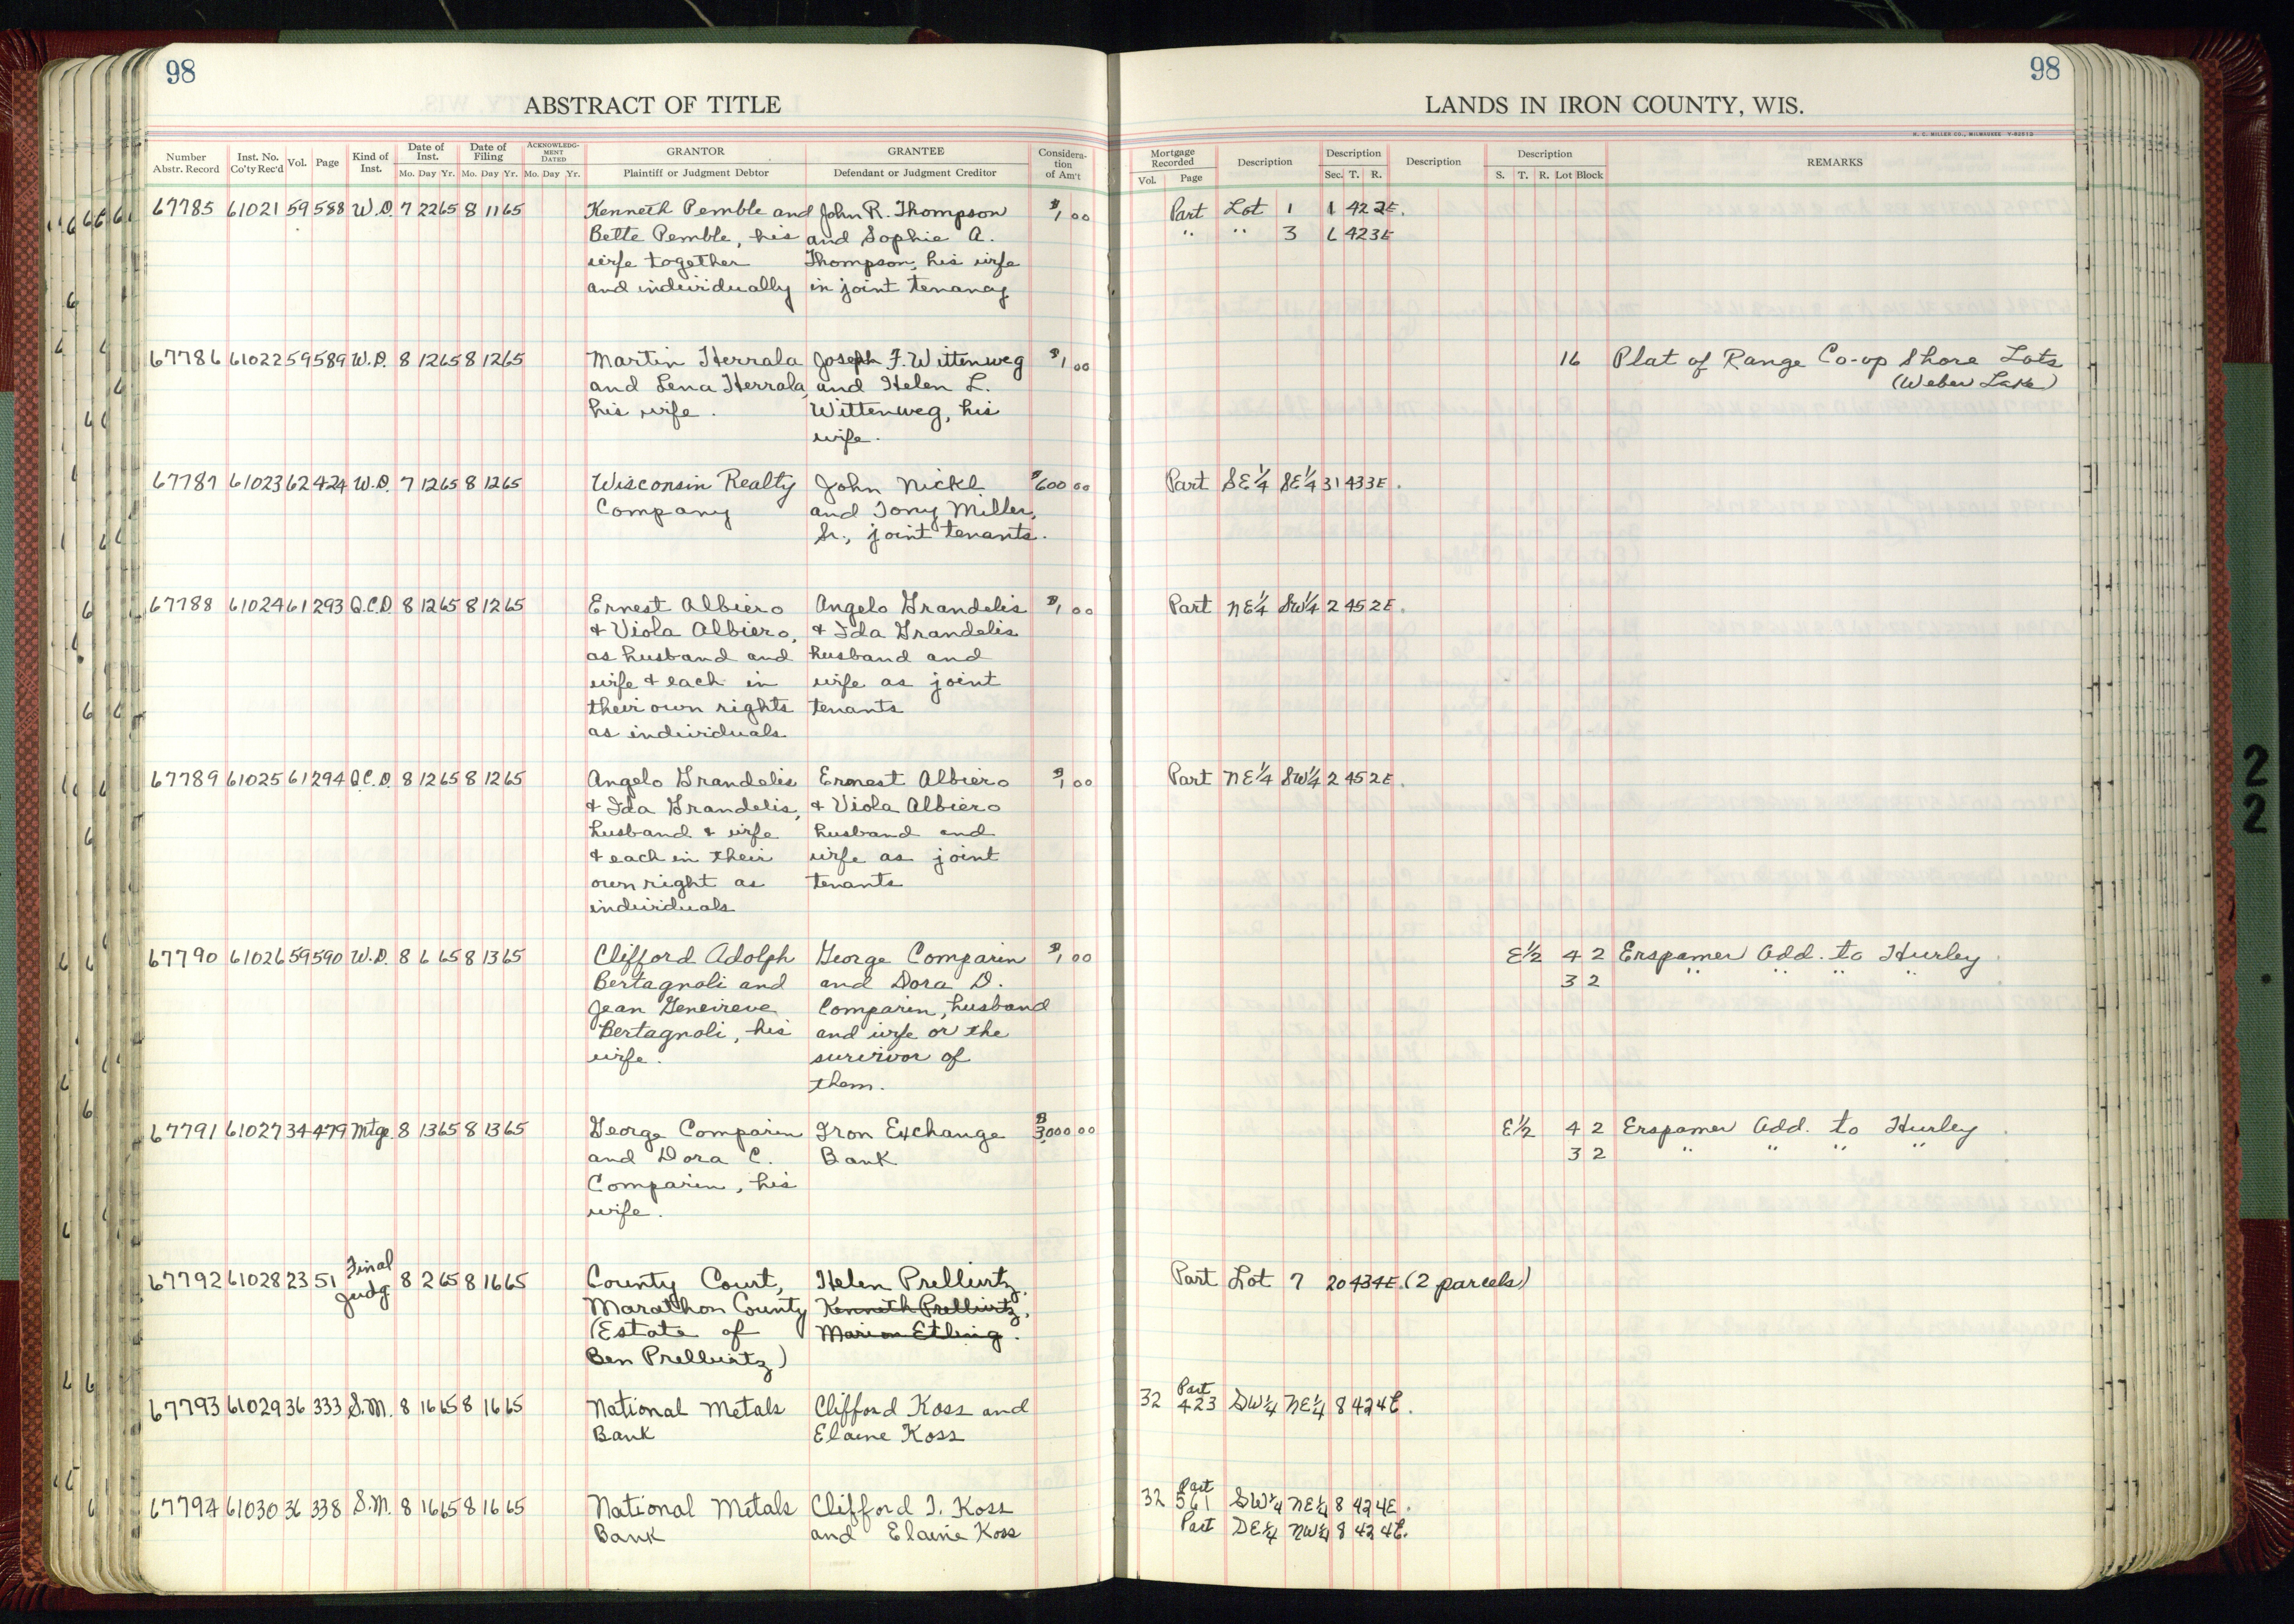 98
98
ABSTRACT OF TITLE
LANDS IN IRON COUNTY, WIS.
H. C. MILLER CO., MILWAUKEE
Number Abstr. Record
Inst. No. Co'ty Rec'd
Vol.
Page
Kind of Inst.
Date of Inst.
Mo. Day Yr.
Date of Filing
Mo. Day Yr.
ACKNOWLEDGMENT DATED
Mo. Day Yr.
GRANTOR
Plaintiff or Judgment Debtor
GRANTEE
Defendant or Judgment Creditor
Considera-
tion
of Am't
Mortgage Recorded
Vol. Page
Description
Description
Sec. T. R.
Description
Description
S. T. R. Lot Block
REMARKS
67785 61021 59 588 W.D. 7 22 65 8 11 65 Kenneth Pemble and John R. Thompson $1,00 Part Lot 1 1 42 2E.
Bette Pemble, his and Sophie A. " " 3 6 42 3E
wife together Thompson, his wife
and individually in joint tenancy
67786 61022 59 589 W.D. 8 12 65 8 12 65 Martin Herrala Joseph F. Wittenweg $1 00 16 Plat of Range Co-op Shore Lots
and Lena Herrala, and Helen L. (Weber Lake)
his wife. Wittenweg, his
wife.
67787 61023 62 424 W.D. 7 12 65 8 12 65 Wisconsin Realty John Nickl $600 00 Part SE¼ SE¼ 31 43 3E.
Company and Tony Miller,
Sr., joint tenants.
67788 61024 61 293 Q.C.D. 8 12 65 8 12 65 Ernest Albiero Angelo Grandelis $1,00 Part NE¼ SW¼ 2 45 2E.
& Viola Albiero, & Ida Grandelis
as husband and husband and
wife & each in wife as joint
their own rights tenants
as individuals
67789 61025 61 294 Q.C.D. 8 12 65 8 12 65 Angelo Grandelis Ernest Albiero $1,00 Part NE¼ SW¼ 2 45 2E.
& Ida Grandelis, & Viola Albiero
husband & wife husband and
& each in their wife as joint
own right as tenants
individuals
67790 61026 59 590 W.D. 8 6 65 8 13 65 Clifford Adolph George Comparin $1,00 E½ 4 2 Erspamer Add. to Hurley.
Bertagnoli and and Dora D. 3 2 " " " "
Jean Geneireve Comparin, husband
Bertagnoli, his and wife or the
wife. survivor of
them.
67791 61027 34 479 Mtge. 8 13 65 8 13 65 George Comparin Iron Exchange $3,000 00 E½ 4 2 Erspamer Add. to Hurley.
and Dora C. Bank 3 2 " " " "
Comparin, his
wife.
67792 61028 23 51 Final Judg 8 2 65 8 16 65 County Court, Helen Prellwitz, Part Lot 7 20 43 4E. (2 parcels)
Marathon County Kenneth Prellwitz,
(Estate of Marion Etling.
Ben Prellwitz)
67793 61029 36 333 S.M. 8 16 65 8 16 65 National Metals Clifford Koss and 32 Part 423 SW¼ NE¼ 8 42 4E.
Bank Elaine Koss
67794 61030 36 338 S.M. 8 16 65 8 16 65 National Metals Clifford I. Koss 32 Part 561 SW¼ NE¼ 8 42 4E.
Bank and Elaine Koss Part SE¼ NW¼ 8 42 4E.
2
2